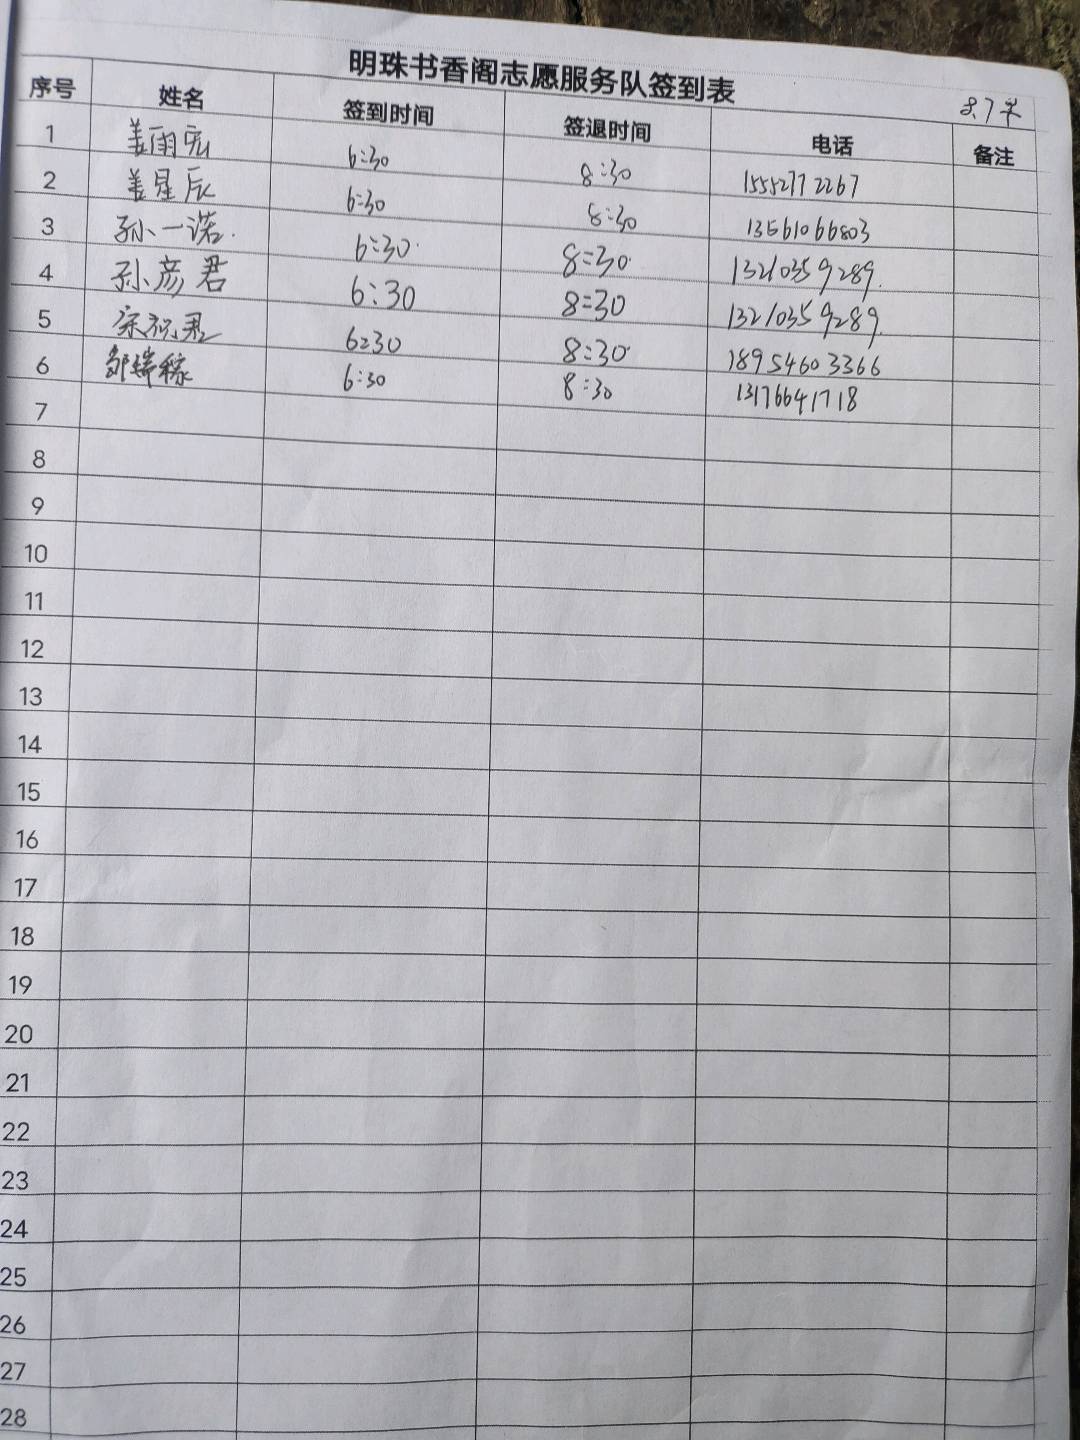 明珠书香阁志愿服务队签到表
8.7
序号 姓名 签到时间 签退时间 电话 备注
1 姜雨宏 6:30 8:30 15552772267
2 姜星辰 6:30 8:30 13561066803
3 孙一诺 6:30 8:30 13210359289
4 孙彦君 6:30 8:30 13210359289
5 6:30 8:30 18954603366
6 邹瑞稼 6:30 8:30 13176641718
7
8
9
10
11
12
13
14
15
16
17
18
19
20
21
22
23
24
25
26
27
28